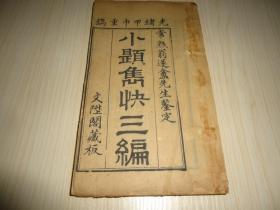 光緒甲申重鐫
常熟翁遂盦先生鑒定
小題雋快三編
文陞閣藏板